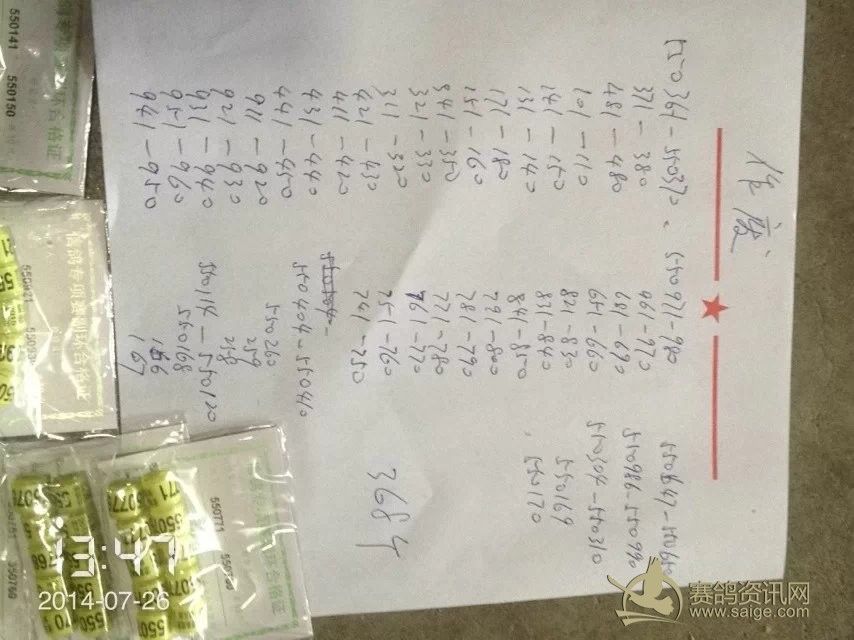 信鸽
550361-550370.
371-380
481-480
101-110
141-150
131-140
171-180
151-160
341-350
321-330
311-320
421-430
411-420
431-440
441-450
911-920
921-930
931-940
951-960
941-950
550971-980
961-970
681-690
651-660
821-830
831-840
841-850
791-800
781-790
771-780
761-770
751-760
741-750
550404-55040
550260
259
258
550114-550120
550168
166
167
550641-550650
550986-550990
550304-550310
550169
550170
368个
550141
550150
550771
13:47
2014-07-26
赛鸽资讯网
www.saige.com